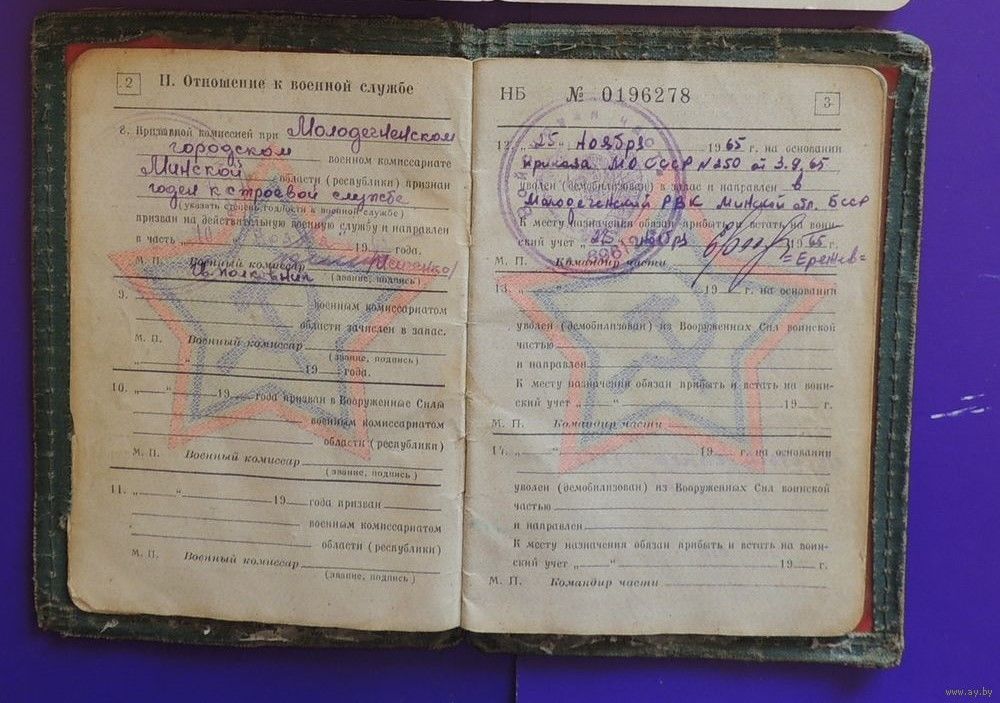 2
II. Отношение к военной службе
8. Призывной комиссией при Молодечненском
городском военном комиссариате
Минской области (республики) признан
годен к строевой службе
(указать степень годности к военной службе)
призван на действительную военную службу и направлен
в часть 19 года.
М. П. Военный комиссар
(звание, подпись)
9. военным комиссариатом
области зачислен в запас.
М. П. Военный комиссар
(звание, подпись)
„ “ 19 года.
10. „ “ 19 года призван в Вооруженные Силы
военным комиссариатом
области (республики)
М. П. Военный комиссар
(звание, подпись)
11. „ “ 19 года призван
военным комиссариатом
области (республики)
М. П. Военный комиссар
(звание, подпись)
НБ № 0196278
3
12. „25“ Ноября 1965 г. на основании
приказа МО СССР №250 от 3.9.65
уволен (демобилизован) в запас и направлен в
Молодеченский РВК Минской обл. Бсср
К месту назначения обязан прибыть и встать на воин-
ский учет „28“ ноября 1965 г.
М. П. Командир части
13. „ “ 19 г. на основании
уволен (демобилизован) из Вооруженных Сил воинской
частью
и направлен
К месту назначения обязан прибыть и встать на воин-
ский учет „ “ 19 г.
М. П. Командир части
14. „ “ 19 г. на основании
уволен (демобилизован) из Вооруженных Сил воинской
частью
и направлен
К месту назначения обязан прибыть и встать на воин-
ский учет „ “ 19 г.
М. П. Командир части
www.ay.by